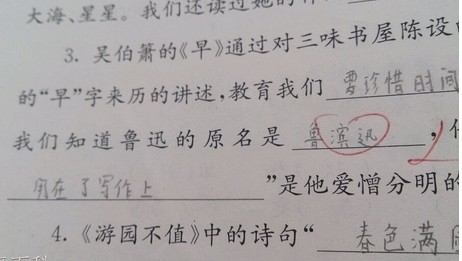 大海、星星。我们还读过她的
3. 吴伯箫的《早》通过对三味书屋陈设
的“早”字来历的讲述,教育我们 要珍惜时间
我们知道鲁迅的原名是 鲁滨迅 ,
用在了写作上 ”是他爱憎分明的
4.《游园不值》中的诗句“ 春色满